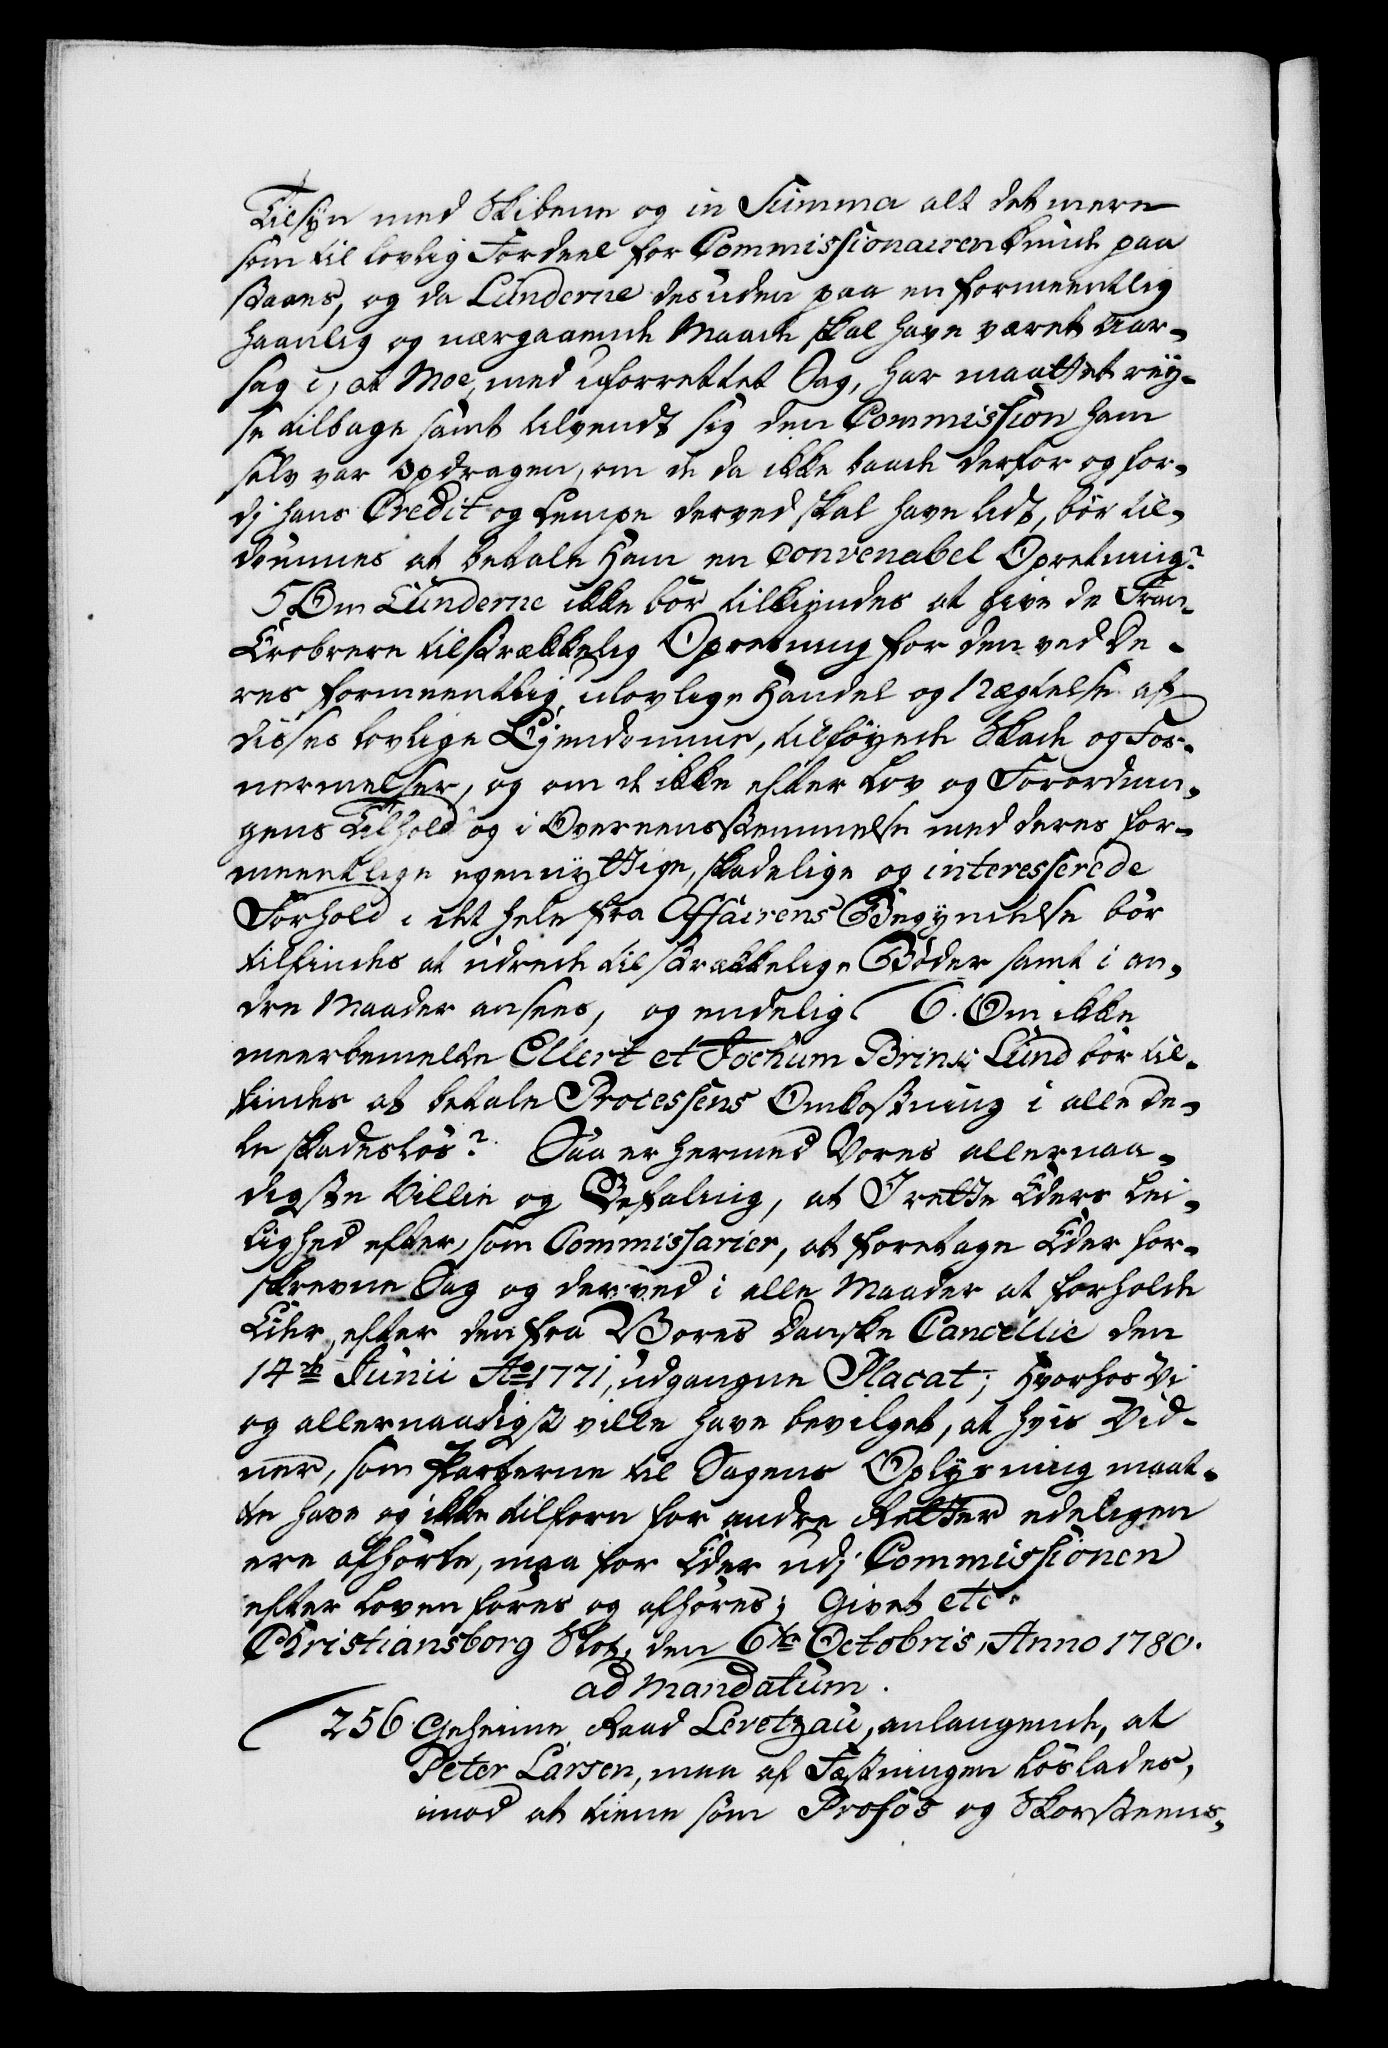 Tilsyn med Skibene og in Summa alt det mere
som til lovlig Fordeel for Commissionairen kunde paa
staaes, og da Lunderne desuden paa en formeentlig
haanlig og nærgaaende Maade skal have været Aar-
sag i, at Moe, med uforrettet Sag, har maattet rey-
se tilbage samt tilvendt sig den Commission ham
selv var opdragen, om de da ikke baade derfor og for-
di hans Credit og Lempe derved skal have lidt, bør til-
dømmes at betale Ham en convenabel Opretning?
5 Om Lunderne ikke bør tilkiendes at give de Fran-
Erobrere tilstrækkelig Opretning for den ved De-
res formeentlig ulovlige Handel og Nægtelse af
disses lovlige Ejendomme, tilføyede Skade og For-
nermelser, og om de ikke efter Lov og Forordnin-
gens Tilhold og i Overeensstemmelse med deres for-
meentlige egennyttige, skadelige og interesserede
Forhold i det hele fra Affairens Begyndelse bør
tilfindes at udrede tilstrækkelige Bøder samt i an-
dre Maader ansees, og endelig 6. Om ikke
meerbemelte Ellert et Jochum Brinx Lund bør til-
findes at betale Processens Omkostning i alle De-
le skadesløs? Saa er hermed Vores allernaa-
digste Villie og Befaling, at I rette Eders Lei-
lighed efter, som Commissarier, at foretage Eder for-
skrevne Sag og derved i alle Maader at forholde
Eder, efter den fra Vores Danske Cancellie den
14de Junii Ao 1771, udgangne Placat; Hvorhos Vi
og allernaadigst ville have bevilget, at hvis Vid-
ner, som Parterne til Sagens Oplysning maat-
te have og ikke tilforn for andre Retter edeligen
ere afhørte, maa for Eder udj Commissionen
efter Loven føres og afhøres; Givet etc.
Christiansborg Slot, den 6te Octobris, Anno 1780.
ad Mandatum.
256 Geheime Raad Levetzau, anlangende, at
Peter Larsen, maa af Fæstningen løslades,
imod at tiene som Profos og Skorsteens-